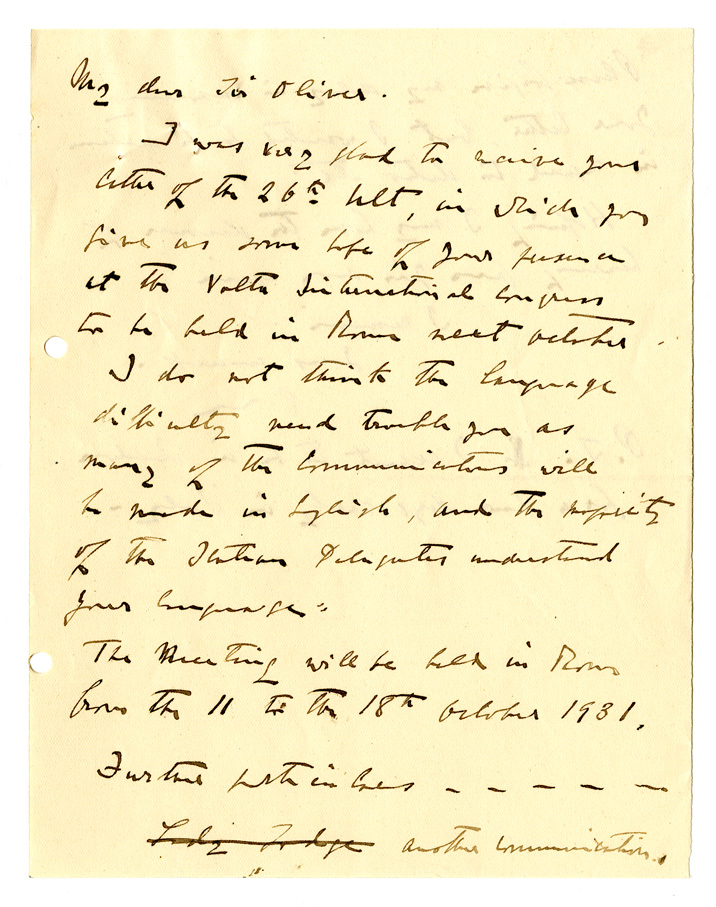 My dear Sir Oliver.
I was very glad to receive your
letter of the 26th Ult, in which you
give us some hope of your presence
at the Volta International Congress
to be held in Rome next October.
I do not think the language
difficulty need trouble you as
many of the Communications will
be made in English, and the majority
of the Italian Delegates understand
your language.
The Meeting will be held in Rome
from the 11 to the 18th October 1931.
Further particulars – – – – – –
Lady Lodge another communication.